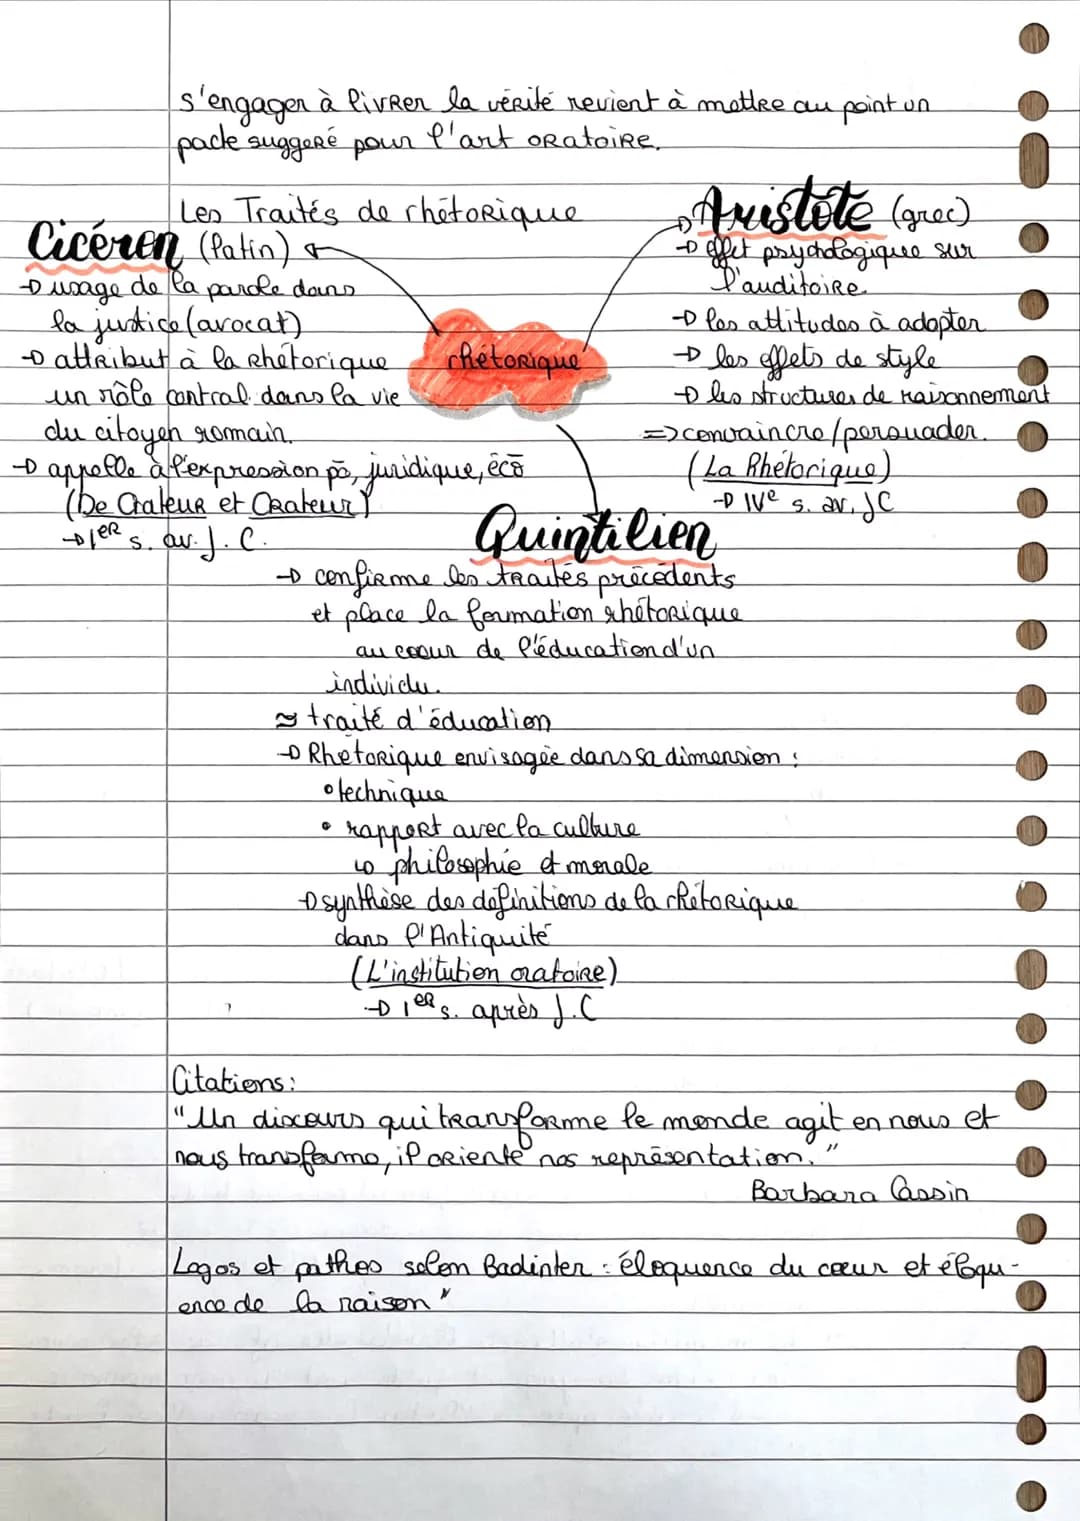 s'engager à livrer la vérité revient à mettre au point un
pacte suggéré pour l'art oratoire.
Les Traités de rhétorique
Cicéron (latin)
→ usage de la parole dans
la justice (avocat)
→ attribut à la rhétorique
un rôle central dans la vie
du citoyen romain.
→ appelle à l'expression pō, juridique, écō
(De Orateur et Orateur)
→ 1er s. av. J. C.
rhétorique
Aristote (grec)
→ effet psychologique sur
l'auditoire
→ les attitudes à adopter
→ les effets de style
→ les structures de raisonnement
=> convaincre/persuader.
(La Rhétorique)
→ IVe s. av. JC
Quintilien
→ confirme les traités précédents
et place la formation rhétorique
au coeur de l'éducation d'un
individu.
≈ traité d'éducation
→ Rhétorique envisagée dans sa dimension :
• technique
• rapport avec la culture
↳ philosophie et morale
→ synthèse des définitions de la rhétorique
dans l'Antiquité
(L'institution oratoire)
→ 1er s. après J.C
Citations:
"Un discours qui transforme le monde agit en nous et
nous transforme, il oriente nos représentation."
Barbara Cassin
Logos et pathos selon Badinter : éloquence du cœur et éloqu-
ence de la raison"